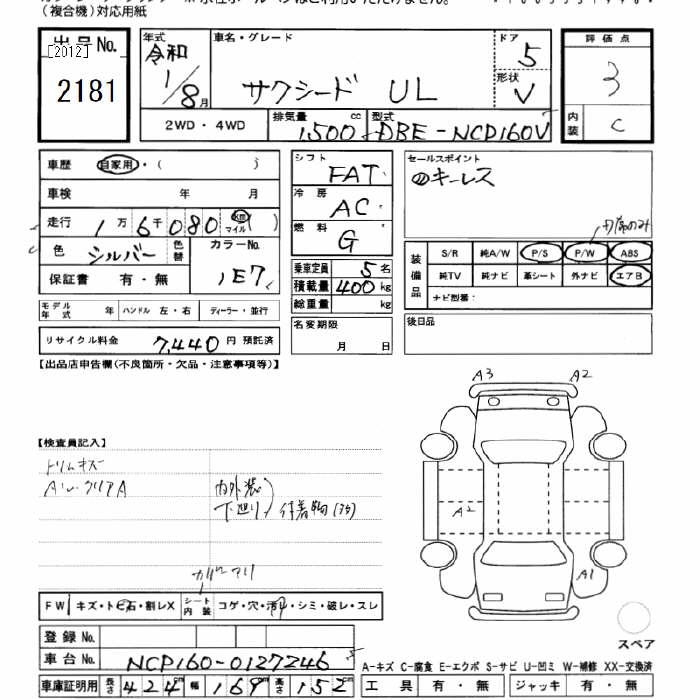 (複合機)対応用紙
出品No.
[2012]
2181
年式
令和
1/8月
車名・グレード
サクシード UL
ドア
5
形状
V
2WD・4WD
排気量
1,500
cc
型式
DBE-NCP160V
評価点
3
内装
C
車歴 自家用・( )
車検 年 月
走行 1万6千080 km マイル ( )
色 シルバー 色替
カラーNo.
1E7
保証書 有・無
モデル年式 年 ハンドル 左・右 ディーラー・並行
リサイクル料金 7,440 円 預託済
シフト
FAT
冷房
AC
燃料
G
乗車定員 5 名
積載量 400 kg
総重量 kg
名変期限
月 日
セールスポイント
キーレス
装備品
S/R 純A/W P/S P/W ABS
純TV 純ナビ 革シート 外ナビ エアB
ナビ型番:
後日品
【出品店申告欄(不良箇所・欠品・注意事項等)】
【検査員記入】
トリムキズ
内外装
下廻り 付着物
A3 A2
A2
A1
FW キズ・トビ石・割レX
シート内装 コゲ・穴・汚レ・シミ・破レ・スレ
スペア
登録No.
車台No. NCP160-0127246
5
車庫証明用 長さ 424 幅 169 高さ 152 cm
A-キズ C-腐食 E-エクボ S-サビ U-凹ミ W-補修 XX-交換済
工具 有・無 ジャッキ 有・無